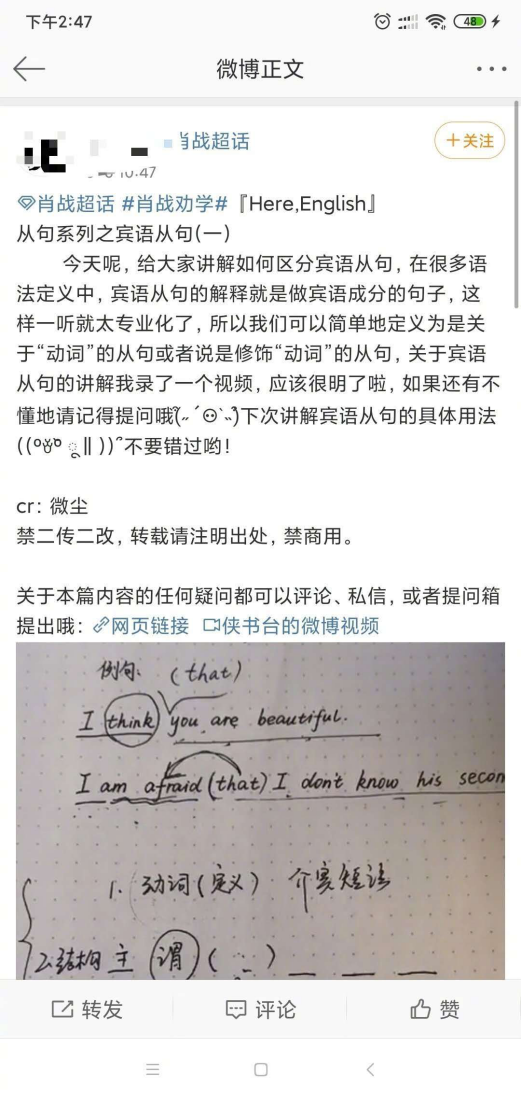 下午2:47
48
微博正文
肖战超话
＋关注
10:47
肖战超话 #肖战劝学#『Here,English』
从句系列之宾语从句(一)
今天呢，给大家讲解如何区分宾语从句，在很多语
法定义中，宾语从句的解释就是做宾语成分的句子，这
样一听就太专业化了，所以我们可以简单地定义为是关
于“动词”的从句或者说是修饰“动词”的从句，关于宾语
从句的讲解我录了一个视频，应该很明了啦，如果还有不
懂地请记得提问哦 下次讲解宾语从句的具体用法
不要错过哟！
cr：微尘
禁二传二改，转载请注明出处，禁商用。
关于本篇内容的任何疑问都可以评论、私信，或者提问箱
提出哦：网页链接 侠书台的微博视频
例句: (that)
I think you are beautiful.
I am afraid (that) I don't know his secon
1. 动词(定义) 介宾短语
2.结构 主 谓 (
转发
评论
赞